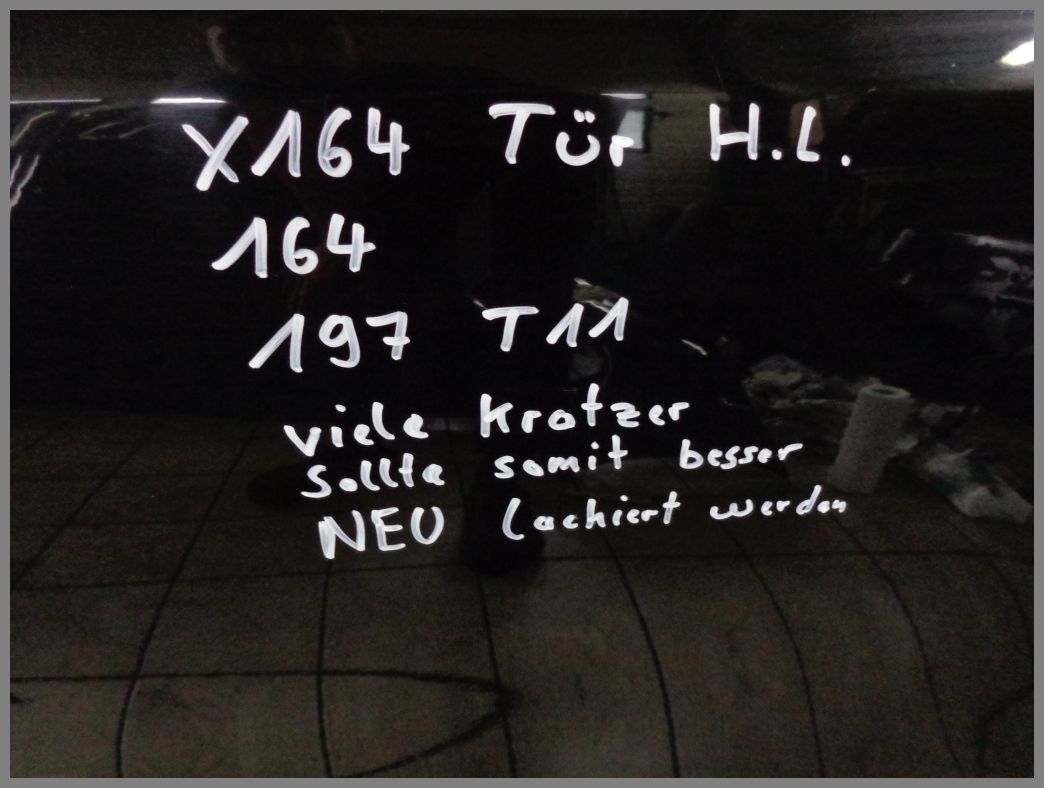 X164 Tür H.L.
164
197 T11
viele Kratzer
sollte somit besser
NEU lackiert werden